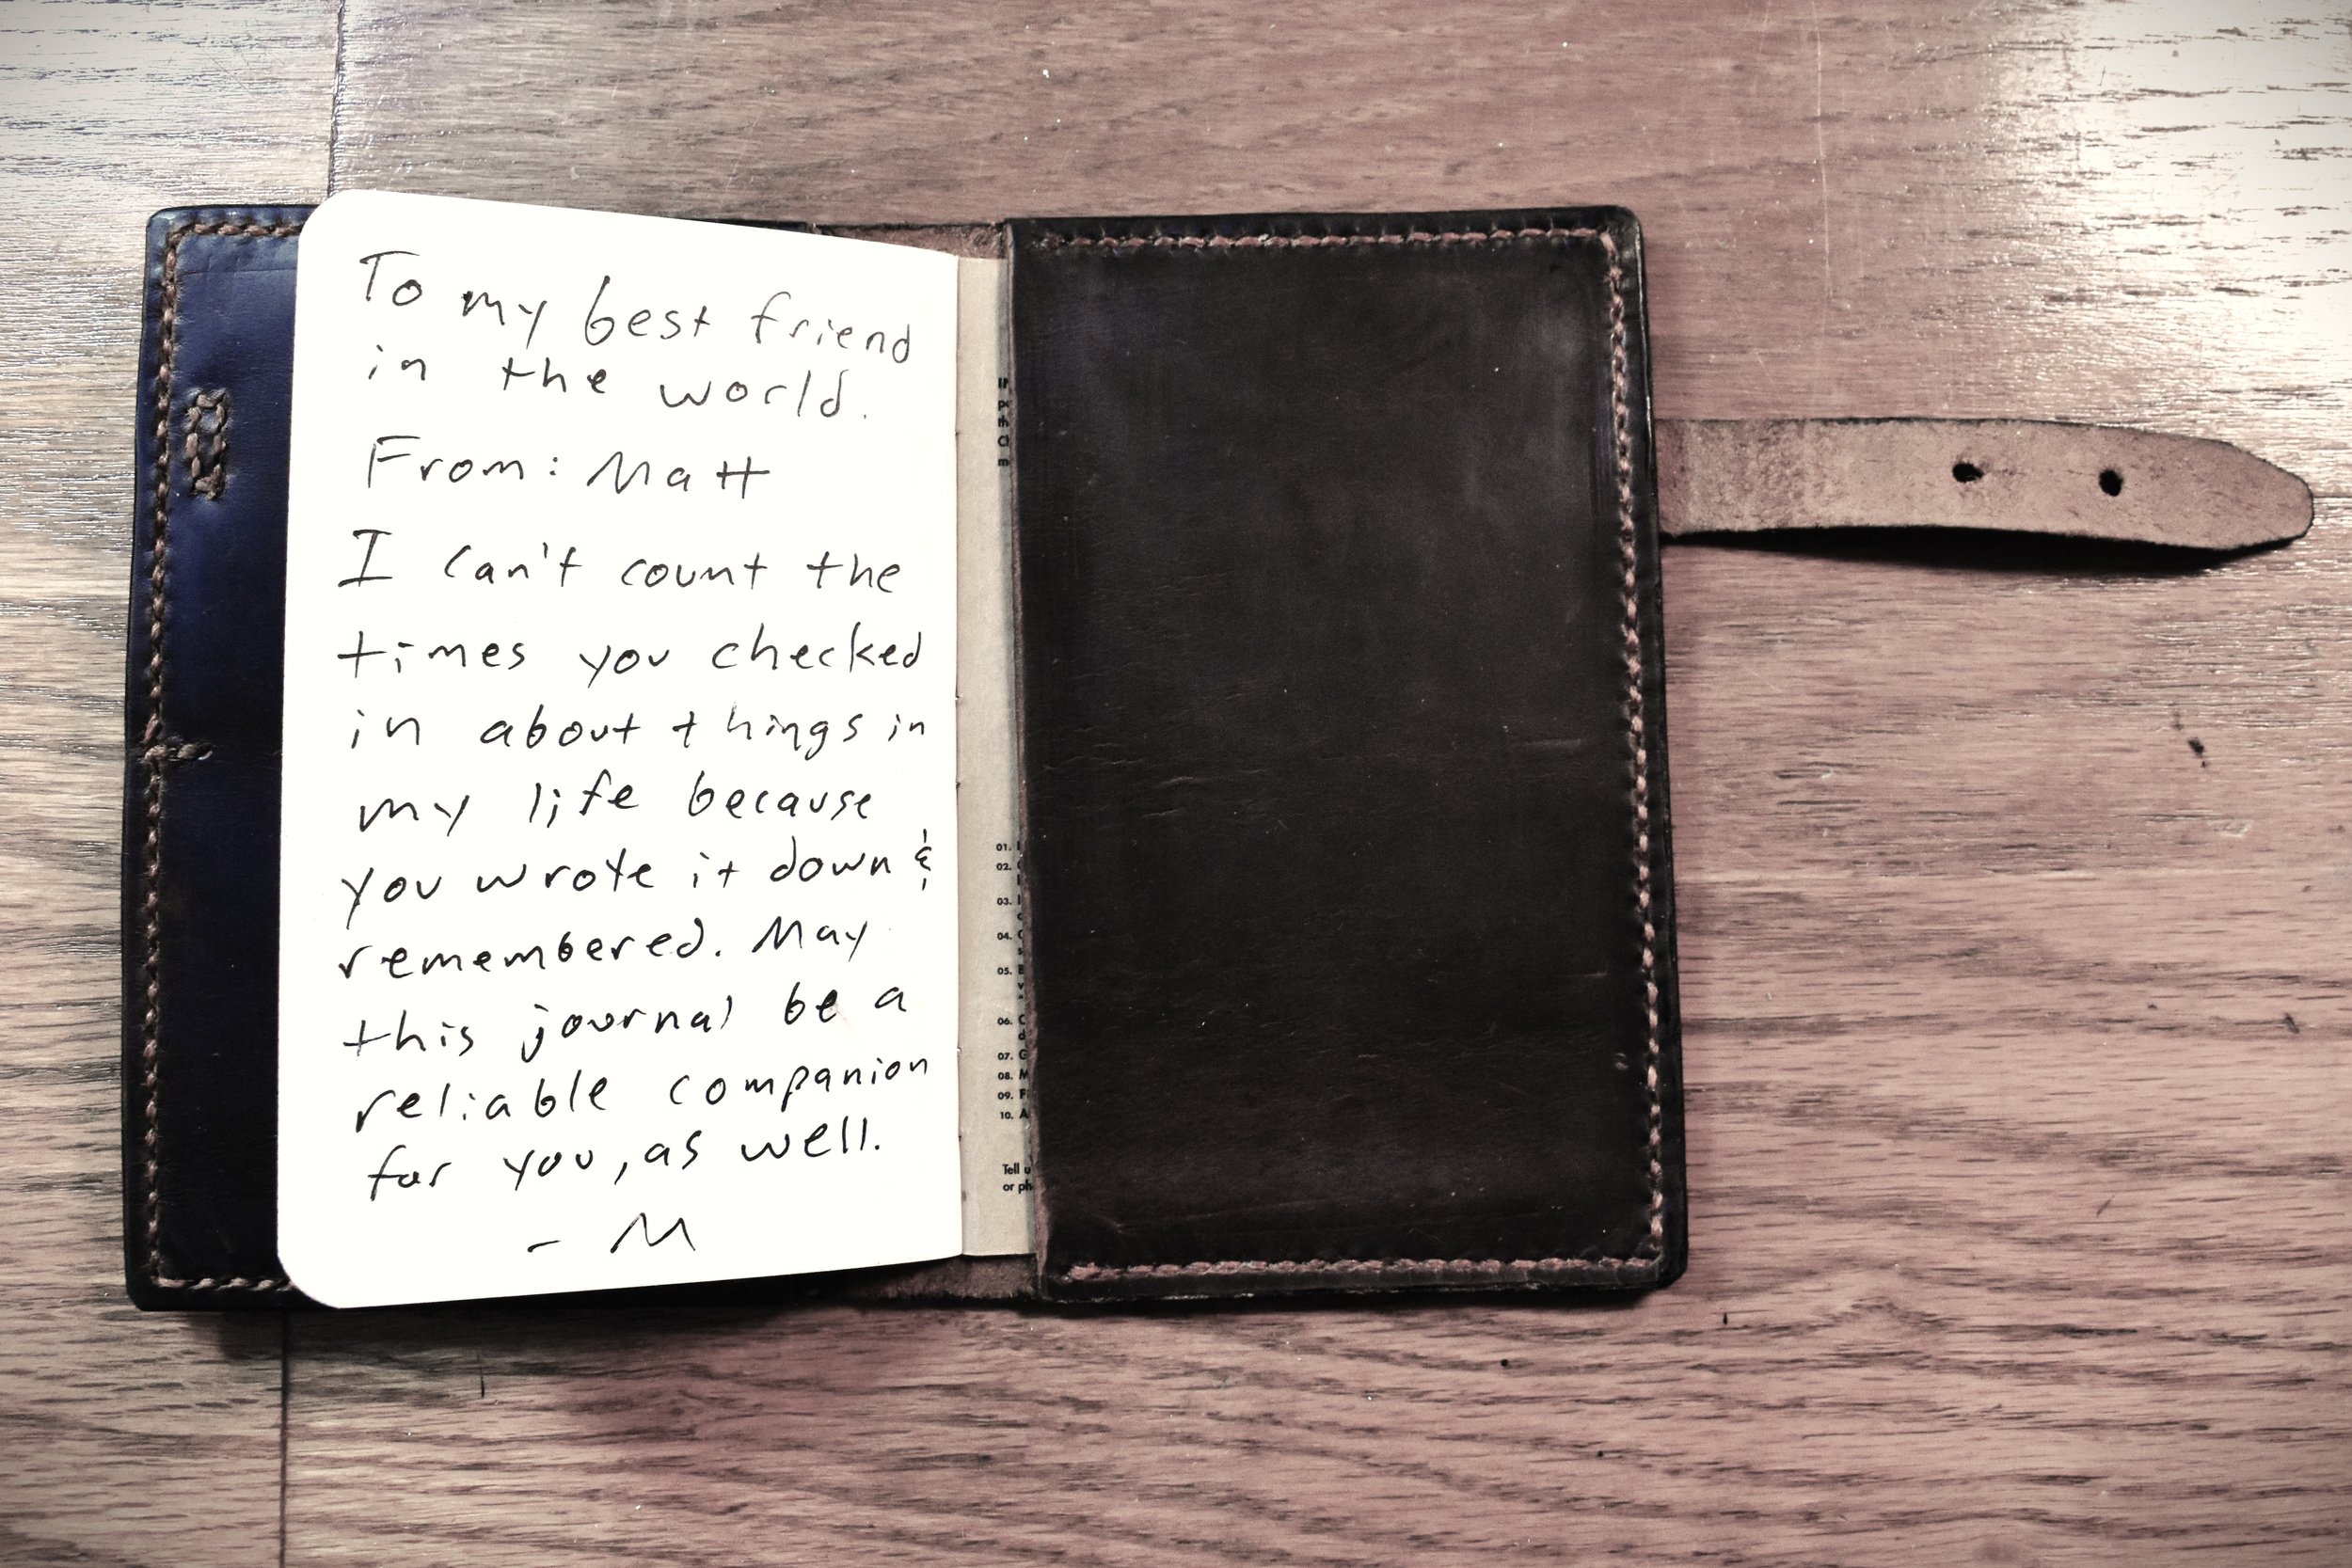 To my best friend
in the world.
From: Matt
I can't count the
times you checked
in about things in
my life because
you wrote it down &
remembered. May
this journal be a
reliable companion
for you, as well.
- M
01.
02.
03.
04.
05.
06.
07.
08.
09.
10.
Tell
or